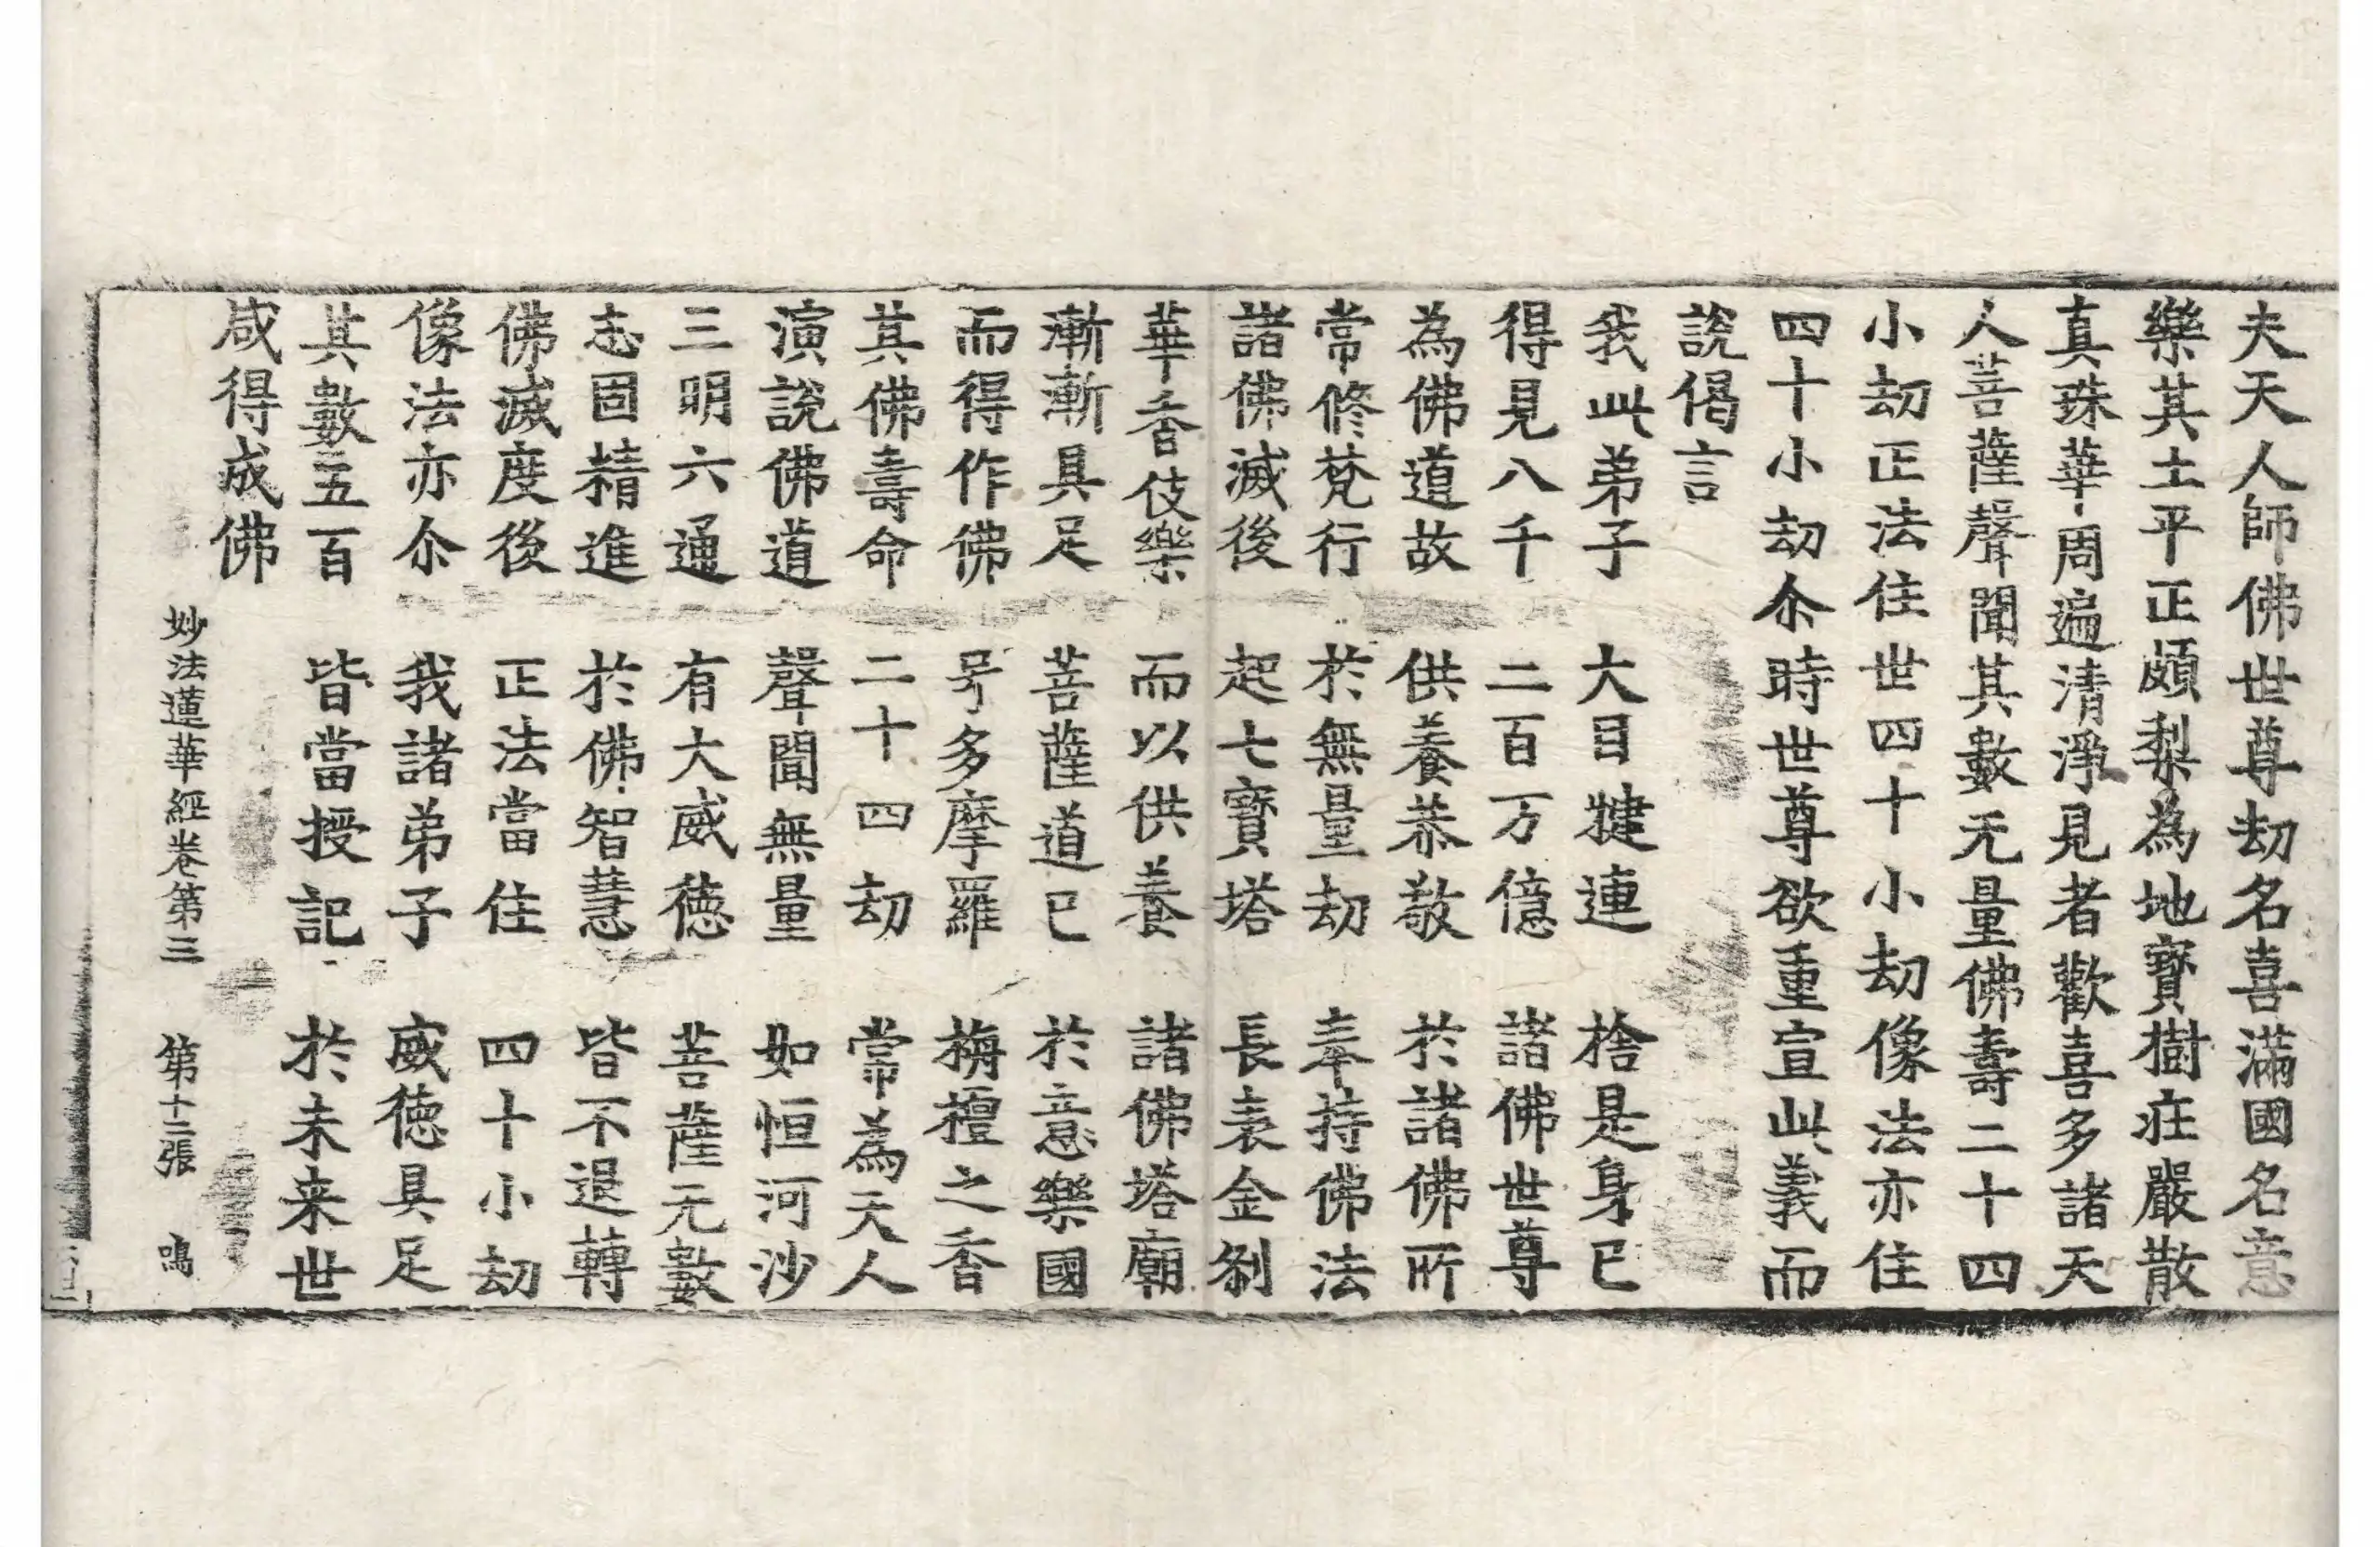 夫天人師佛世尊劫名喜滿國名意
樂其土平正頗梨為地寶樹莊嚴散
真珠華周遍清淨見者歡喜多諸天
人菩薩聲聞其數无量佛壽二十四
小劫正法住世四十小劫像法亦住
四十小劫尒時世尊欲重宣此義而
說偈言
我此弟子 大目揵連 捨是身已
得見八千 二百万億 諸佛世尊
為佛道故 供養恭敬 於諸佛所
常修梵行 於無量劫 奉持佛法
諸佛滅後 起七寶塔 長表金剎
華香伎樂 而以供養 諸佛塔廟
漸漸具足 菩薩道已 於意樂國
而得作佛 号多摩羅 栴檀之香
其佛壽命 二十四劫 常為天人
演說佛道 聲聞無量 如恒河沙
三明六通 有大威德 菩薩无數
志固精進 於佛智慧 皆不退轉
佛滅度後 正法當住 四十小劫
像法亦尒 我諸弟子 威德具足
其數五百 皆當授記 於未来世
咸得成佛
妙法蓮華經卷第三 第十二張 鳴